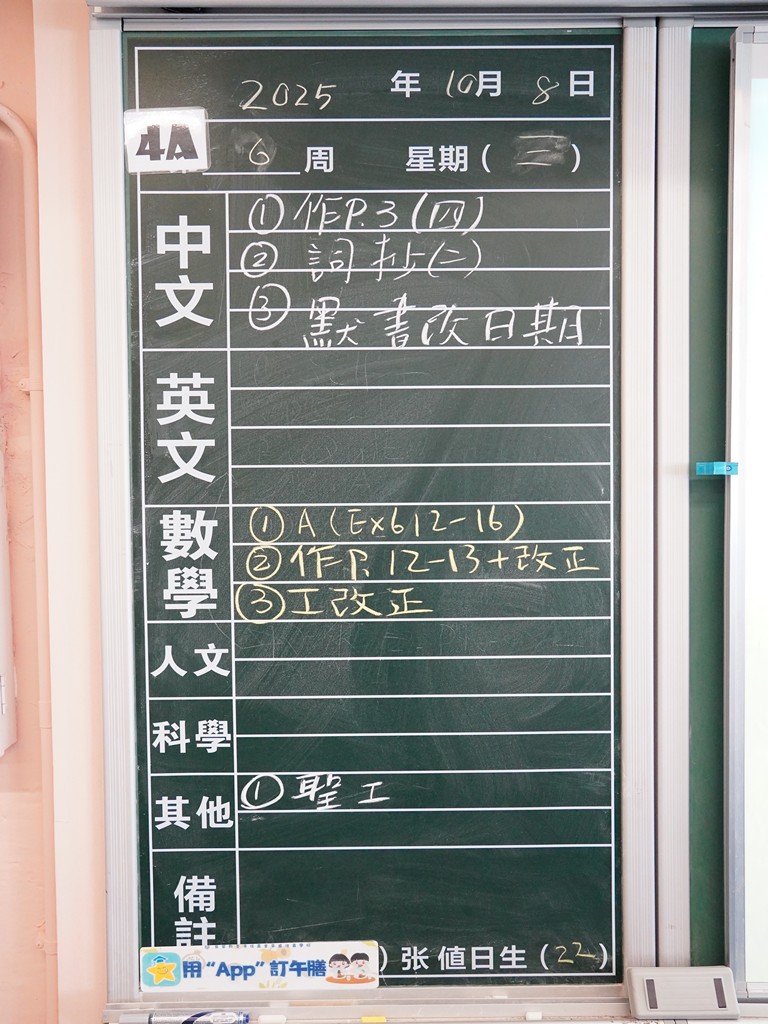 2025 年 10月 8 日
4A
6 周 星期(三)
中文
① 作P.3(四)
② 詞抄(二)
③ 默書改日期
英文
數學
① A(Ex6 12-16)
② 作P.12-13+改正
③ 工改正
人文
科學
其他
① 聖工
備註
用“App”訂午膳
) 张 值日生(22)